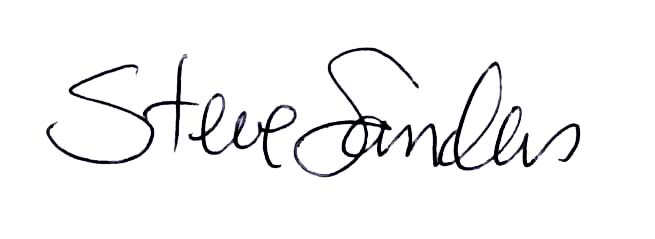 Steve Sanders